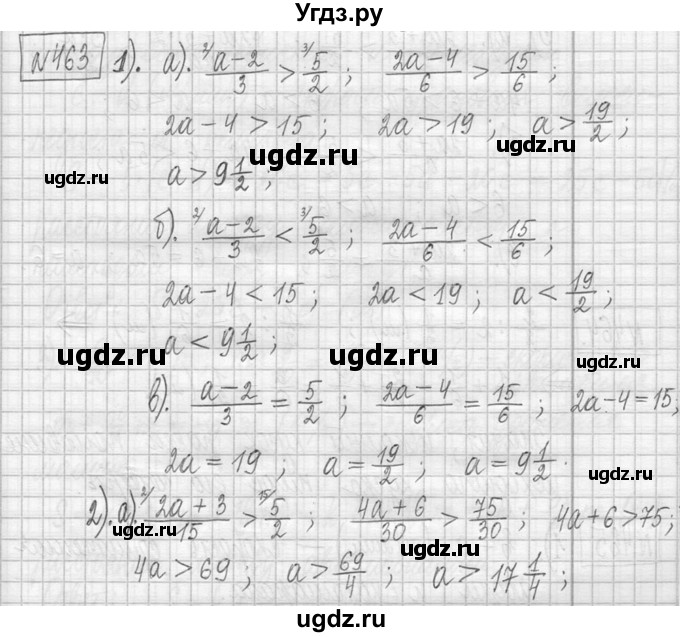 Угдз.ру
№463 1). а). ²⁄ (a-2)/3 > ³⁄ 5/2 ; (2a-4)/6 > 15/6 ;
2a-4 > 15 ; 2a > 19 ; a > 19/2 ;
ugdz.ru ugdz.ru
a > 9 1/2 ;
ugdz.ru
б). ²⁄ (a-2)/3 < ³⁄ 5/2 ; (2a-4)/6 < 15/6 ;
ugdz.ru ugdz.ru
2a-4 < 15 ; 2a < 19 ; a < 19/2 ;
a < 9 1/2 ;
ugdz.ru ugdz.ru
в). (a-2)/3 = 5/2 ; (2a-4)/6 = 15/6 ; 2a-4 = 15 ;
2a = 19 ; a = 19/2 ; a = 9 1/2 .
ugdz.ru
2). а). ²⁄ (2a+3)/15 > ¹⁵⁄ 5/2 ; (4a+6)/30 > 75/30 ; 4a+6 > 75 ;
ugdz.ru ugdz.ru
4a > 69 ; a > 69/4 ; a > 17 1/4 ;
ugdz.ru ugdz.ru